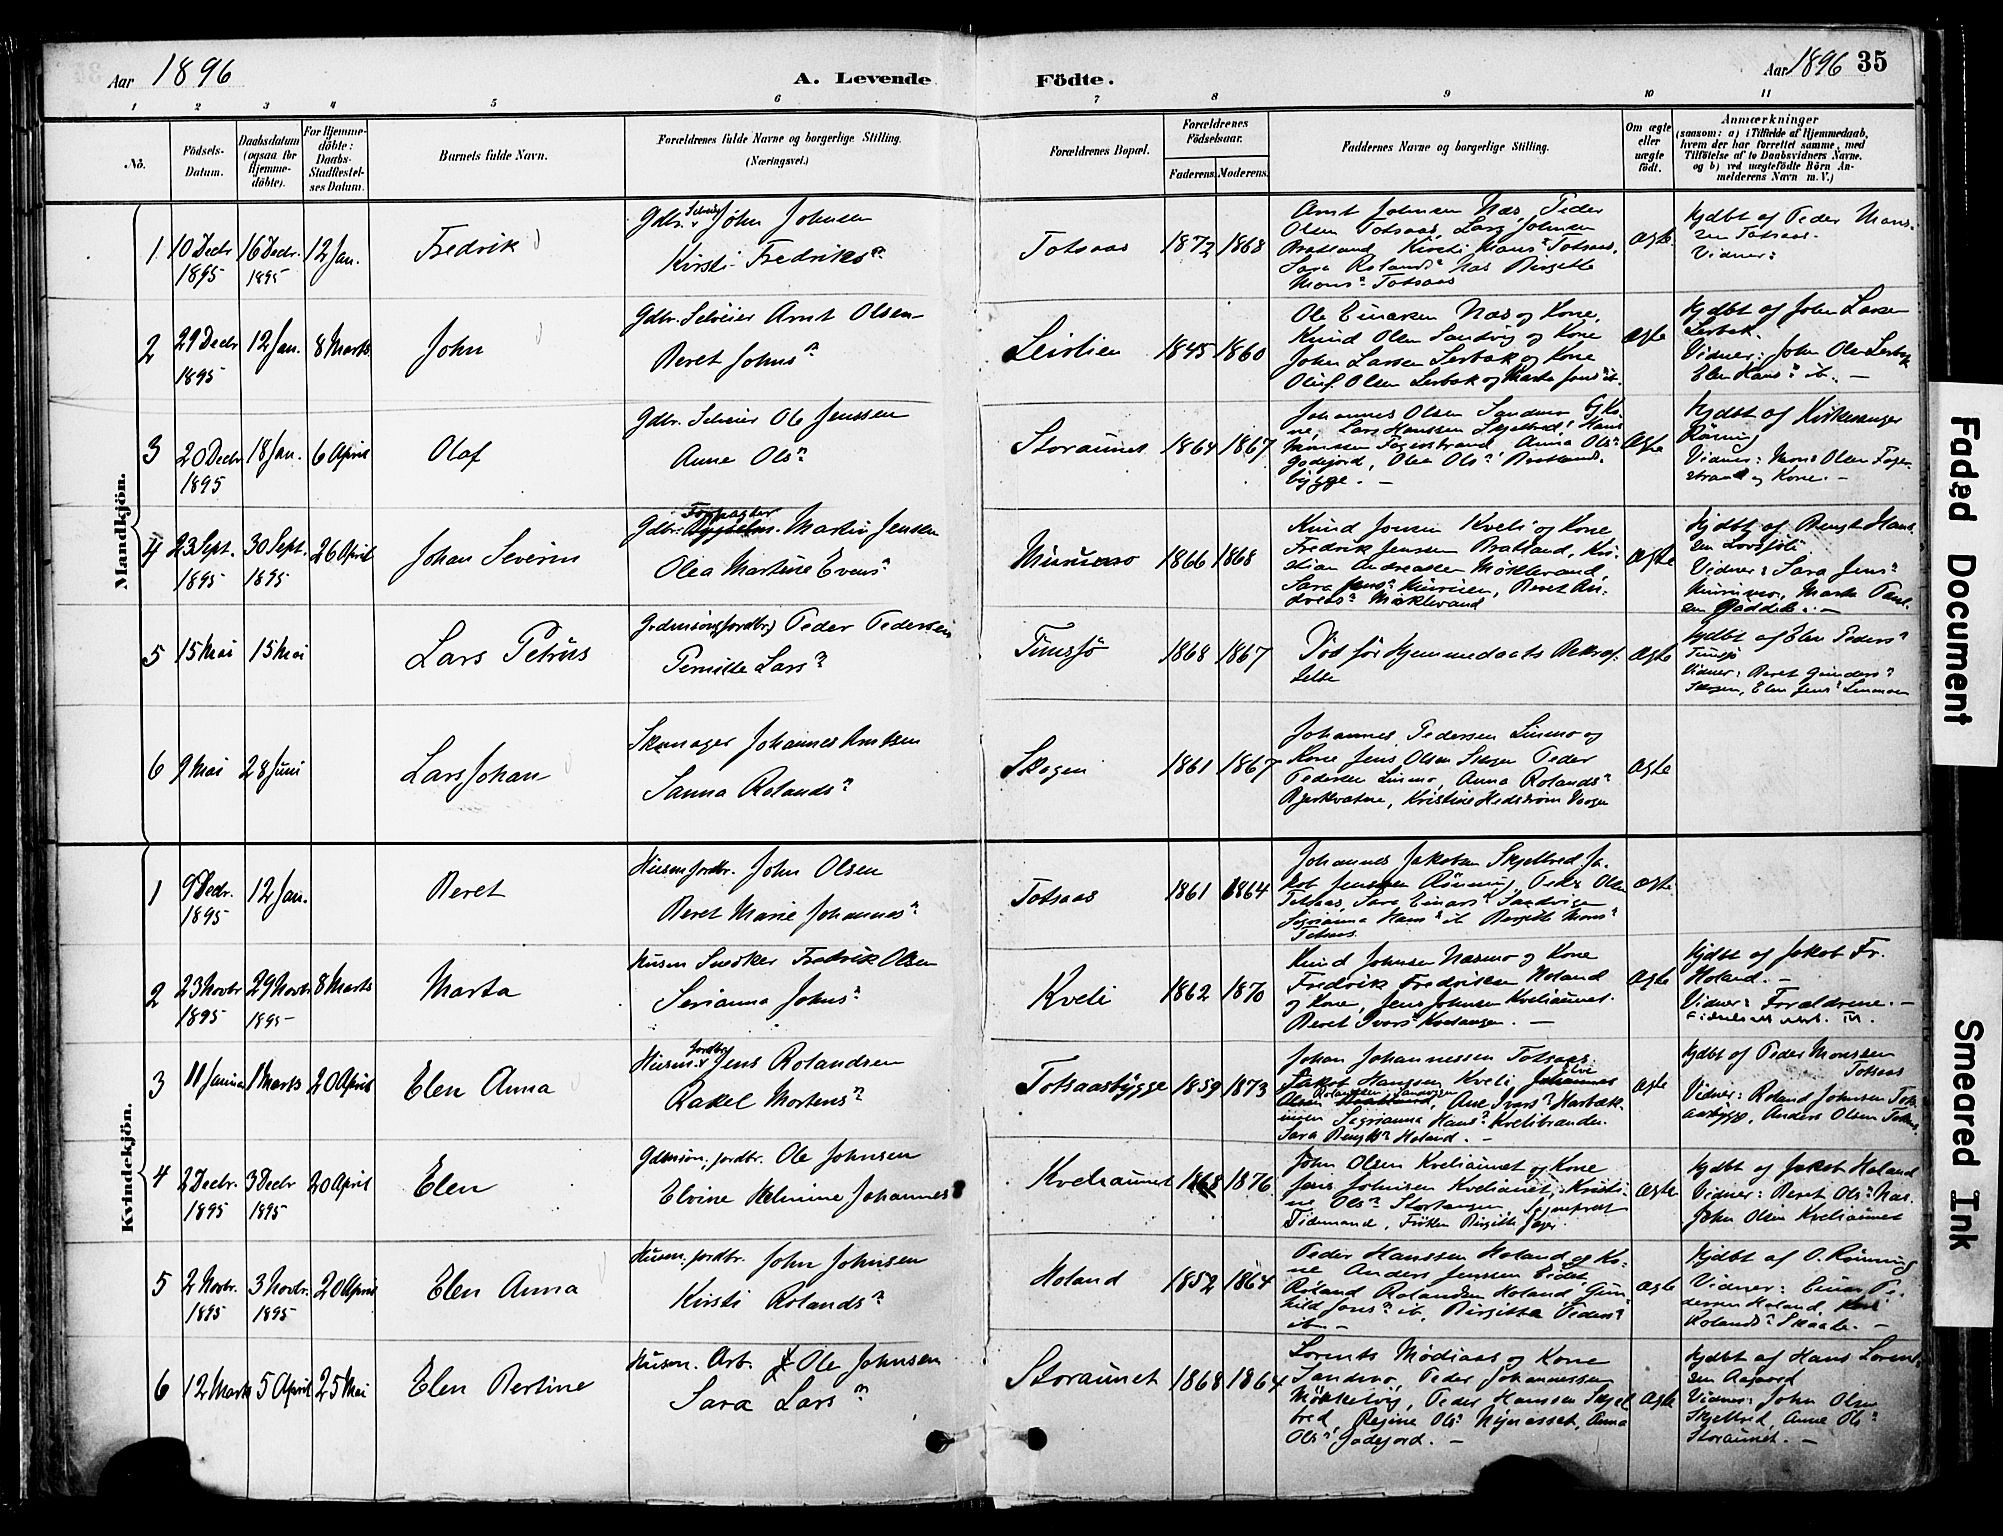 Aar 1896
A. Levende
Födte.
Aar 1896 35
1 2 3 4 5 6 7 8 9 10 11
No.
Födsels-Datum.
Daabsdatum (ogsaa for Hjemmedöbte).
For Hjemmedöbte: Daabs-Stadfæstelses Datum.
Barnets fulde Navn.
Forældrenes fulde Navne og borgerlige Stilling. (Næringsvei.)
Forældrenes Bopæl.
Forældrenes Födselsaar.
Faderens. Moderens.
Faddernes Navne og borgerlige Stilling.
Om ægte eller uægte födt.
Anmærkninger
(saasom: a) i Tilfælde af Hjemmedaab,
hvem der har forrettet samme, med
Tilföielse af to Daabsvidners Navne,
og b) ved uægtefödte Börn An-
melderens Navn m. V.)
Mandkjön.
1 10 Decbr 1895 16 Decbr. 1895 12 Jan. Fredrik
Gdbr. Selveier John Johnsen
Kirsti Fredriksn
Totsaas 1872 1868
Arnt Johnsen Næs, Peder
Olsen Totsaas, Lars Johnsen
Bratland, Kirsti Hansn Totsaas,
Sara Rolandsn Næs Birgitte
Monsn Totsaas
Ægte
Hjdbt af Peder Mons-
sen Totsaas.
Vidner:
2 29 Decbr 1895 12 Jan. 8 Marts John
Gdbr. Selveier Arnt Olsen
Beret Johnsn
Leirlien 1845 1860
Ole Einarsen Næs og Kone,
Knud Olsen Sandvig og Kone
John Larsen Lerbak og Kone
Oluf Olsen Lerbak og Marta Jonsn ib.
Ægte
Hjdbt af John Larsen
Lerbak.
Vidner: John Olsen Lerbak
Elen Hansn ib.
3 20 Decbr 1895 18 Jan. 6 April Olaf
Gdbr. Selveier Ole Jenssen
Anne Olsn
Storaunet 1864 1867
Johannes Olsen Sandmo og Ko-
ne, Lars Hanssen Skjelbred, Hans
Monssen Fagerstrand, Anna Olsn
Godejord, Olea Olsn Bratlands-
bygge.
Ægte
Hjdbt af Kirkesanger
Rönning
Vidner: Mons Olsen Fager-
strand og Kone.
4 23 Sept. 1895 30 Sept. 1895 26 April Johan Severin
Gdbr. Forpagter Martin Jensen
Olea Martine Evensn
Murumo 1866 1868
Knud Jonsen Kveli og Kone
Fredrik Jensen Bratland, Kri-
stian Andreassen Möklevand
Sara Jensn Murviken, Beret An-
dreasn Möklevand
Ægte
Hjdbt af Bengt Hans-
sen Lovsjöli
Vidner: Sara Jensn
Murumo, Marta Paul-
sen Gäddede.
5 15 Mai 15 Mai Lars Petrus
Gdmansön (jordbr.) Peder Pedersen
Pernille Larsn
Tunsjö 1868 1867
Död för Hjemmedaabs Bekræf-
telse
Ægte
Hjdbt af Elen Pedersn
Tunsjö
Vidner: Beret Gundersn
Skogen, Elen Jensn Linmoen
6 9 Mai 28 Juni Lars Johan
Skomager Johannes Arntsen
Sanna Rolandsn
Skogen 1861 1867
Johannes Pedersen Linmo og
Kone Jens Olsen Skogen Peder
Pedersen Linmo, Anna Rolandsn
Bjørkvatne, Kristine Hedström
Ægte
Kvindekjön.
1 9 Decbr. 1895 12 Jan. Beret
Husm. jordbr. John Olsen
Beret Marie Johannesn
Totsaas 1861 1864
Johannes Jakobsen Skjelbred Ja-
kob Jenssen Rönning, Peder Olsen
Totsaas, Sara Einarsn Sandvigen
Sigrianna Hansn ib Birgitte Monsn
Totsaas.
Ægte
2 23 Novbr 1895 29 Novbr 1895 8 Marts Marta
Husm Snedker Fredrik Olsen
Serianna Johnsn
Kveli 1862 1870
Knud Johnsen Næsmo og Kone
Fredrik Fredriksen Holand
og Kone, Jens Johnsen Kveliaunet.
Beret Ivarsn
Ægte
Hjdbt af Jakob Fr.
Holand.
Vidner: Forældrene.
3 11 Januar 1 Marts 20 April Elen Anna
Husm. jordbr. Jens Rolandsen
Rakel Mortensn
Totsaasbygge 1859 1873
Johan Johannessen Totsaas.
Jakob Hanssen Kveli, Johannes
Rolandsen Sandvigen, Ane Ivarsn
Sigrianna Hansn Kvelibranden.
Sara Bengtsn Holand.
Ægte
Hjdbt af Peder Monssen
Totsaas
Vidner: Roland Johnsen Tots-
aasbygge, Anders Olsen Totsaas.
4 2 Decbr. 1895 3 Decbr 1895 20 April Elen
Gdmsön, jordbr. Ole Johnsen
Elvine Helmine Johannesn
Kveliaunet 1868 1876
John Olsen Kveliaunet og Kone
Jens Johnsen Kveliaunet, Kristi-
ne Olsn Stortangen, Sogneprest
Tidemand, Fröken Birgitte Jæger.
Ægte
Hjdbt af Jakob Holand
Vidner: Beret Olsn Næs.
John Olsen Kveliaunet
5 2 Novbr. 1895 3 Novbr. 1895 20 April Elen Anna
Husm. jordbr. John Johnsen
Kirsti Rolandsn
Holand 1852 1864
Peder Hanssen Holand og Ko-
ne Anders Jenssen Eidet,
Roland Rolandsen Holand, Gun-
hild Jonsn ib, Birgitta Pedersn
ib.
Ægte
Hjdbt af O. Rönning
Vidner: Einar Pe-
dersen Holand, Kari
Rolandsn Skaale.
6 12 Marts 5 April 25 Mai Elen Bertine
Husm. Arb. Ole Johnsen
Sara Larsn
Storaunet 1868 1864
Lorents Mödiaas og Kone
Sandmo, Peder Johannessen
Mökkelvig, Peder Hanssen Skjel-
bred, Regine Olsn Nynæsset, Anna
Olsn Godejord.
Ægte
Hjdbt af Hans Lorent-
sen Aagaard
Vidner: John Olsen
Skjelbred, Anne Olsn
Storaunet.
Faded Document
Smeared Ink